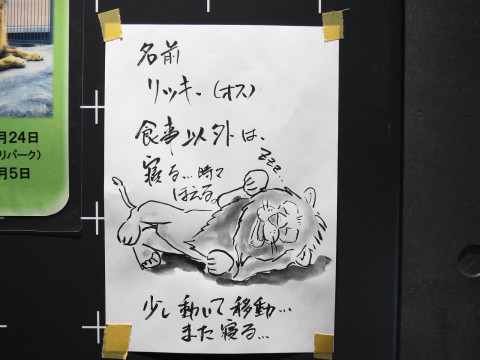 月24日
リパーク)
月5日
名前
リッキー(オス)
食事以外は、
寝る…時々
ほえる。
zzz…
少し動いて移動…
また寝る…